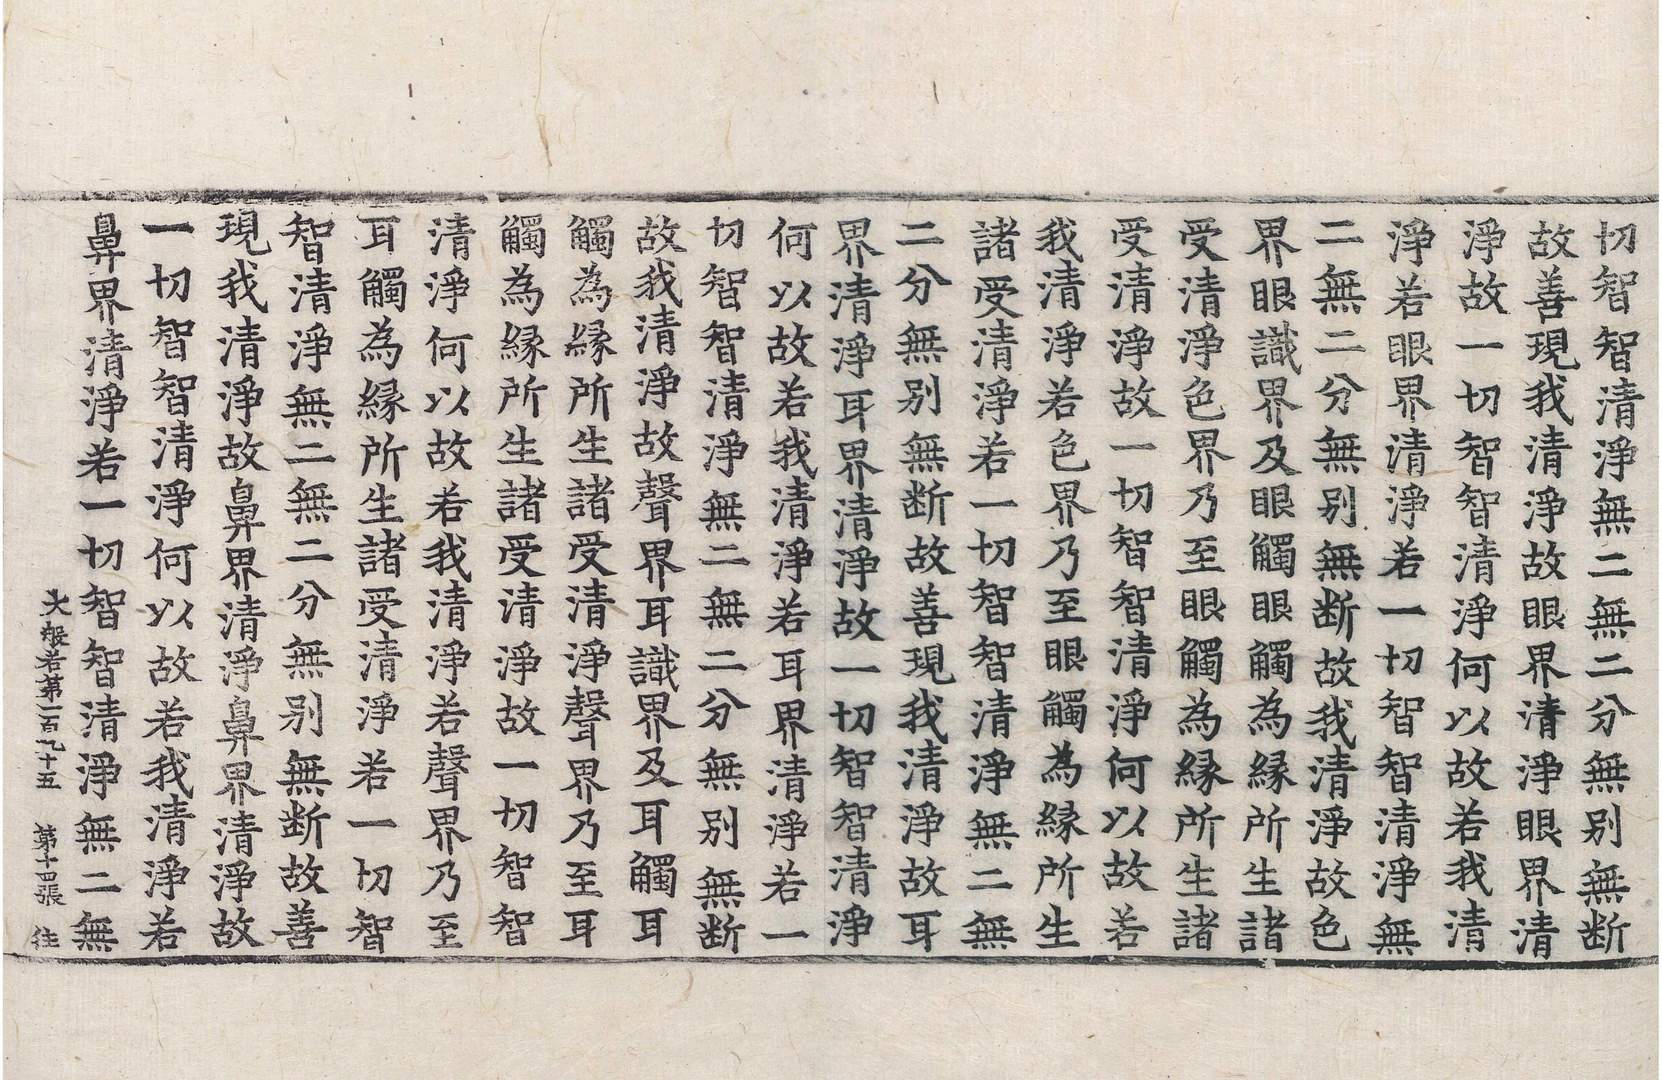 切智智清淨無二無二分無別無断
故善現我清淨故眼界清淨眼界清
淨故一切智智清淨何以故若我清
淨若眼界清淨若一切智智清淨無
二無二分無別無断故我清淨故色
界眼識界及眼觸眼觸為緣所生諸
受清淨色界乃至眼觸為緣所生諸
受清淨故一切智智清淨何以故若
我清淨若色界乃至眼觸為緣所生
諸受清淨若一切智智清淨無二無
二分無別無断故善現我清淨故耳
界清淨耳界清淨故一切智智清淨
何以故若我清淨若耳界清淨若一
切智智清淨無二無二分無別無断
故我清淨故聲界耳識界及耳觸耳
觸為緣所生諸受清淨聲界乃至耳
觸為緣所生諸受清淨故一切智智
清淨何以故若我清淨若聲界乃至
耳觸為緣所生諸受清淨若一切智
智清淨無二無二分無別無断故善
現我清淨故鼻界清淨鼻界清淨故
一切智智清淨何以故若我清淨若
鼻界清淨若一切智智清淨無二無
大般若第一百九十五 第十四張 往